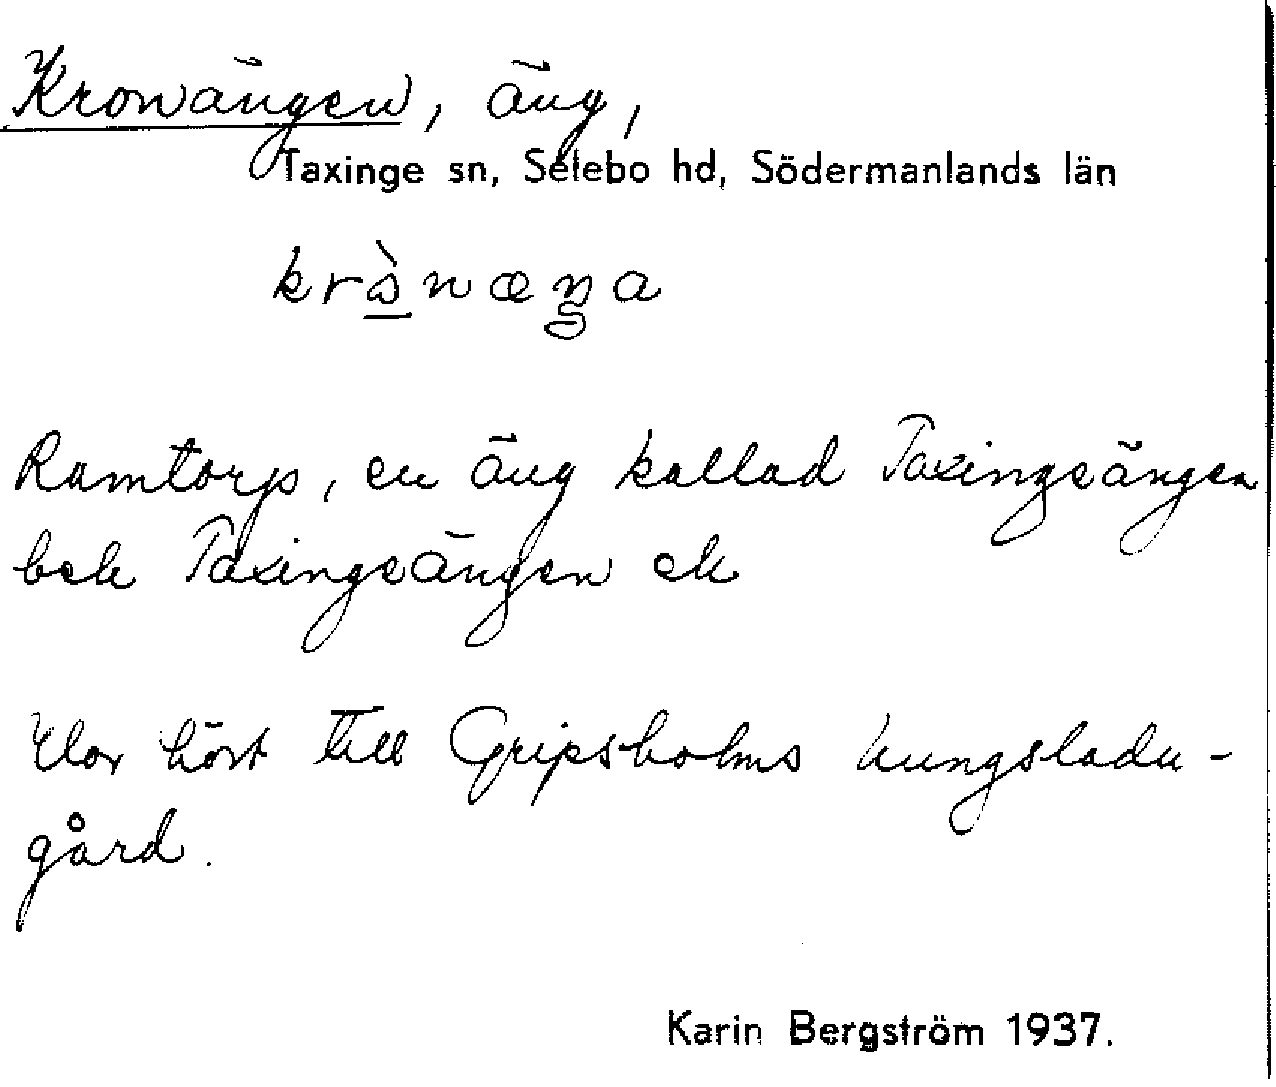 Kronängen, äng,
Taxinge sn, Selebo hd, Södermanlands län
Ramtorp, en äng kallad Taxingeängen
bek Taxingeängen ek
Har hört till Gripsholms kungsladu-
gård.
Karin Bergström 1937.